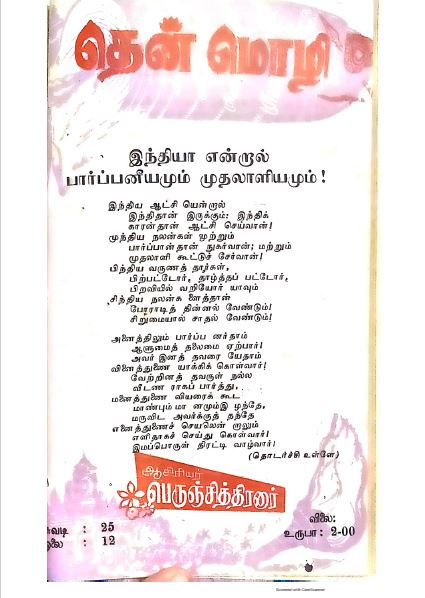 தென் மொழி
இந்தியா என்றால்
பார்ப்பனீயமும் முதலாளியமும்!
இந்திய ஆட்சி யென்றால்
இந்திதான் இருக்கும்: இந்திக்
காரன்தான் ஆட்சி செய்வான்!
முந்திய நலன்கள் முற்றும்
பார்ப்பான்தான் நுகர்வான்; மற்றும்
முதலாளி கூட்டுச் சேர்வான்!
பிந்திய வருணத் தார்கள்,
பிற்பட்டோர், தாழ்த்தப் பட்டோர்,
பிறவியில் வறியோர் யாவும்
சிந்திய நலன்க ளைத்தான்
போராடித் தின்னல் வேண்டும்!
சிறுமையால் சாதல் வேண்டும்!
அனைத்திலும் பார்ப்ப னர்தாம்
ஆளுமைத் தலைமை ஏற்பார்!
அவர் இனத் தவரை யேதாம்
வினைத்துணை யாக்கிக் கொள்வார்!
வேற்றினத் தவருள் நல்ல
வீடண ராகப் பார்த்து,
மனைத்துணை வியரைக் கூட
மாண்பும் மா னமும்இ ழந்தே,
மருவிட அவர்க்குத் தந்தே
எனைத்துணைச் செயலென் றாலும்
எளிதாகச் செய்து கொள்வார்!
இமப்பொருள் திரட்டி வாழ்வார்!
(தொடர்ச்சி உள்ளே)
ஆசிரியர்
பெருஞ்சித்திரனார்
சுவடி : 25
ஓலை : 12
விலை:
உருபா : 2-00
Scanned with CamScanner